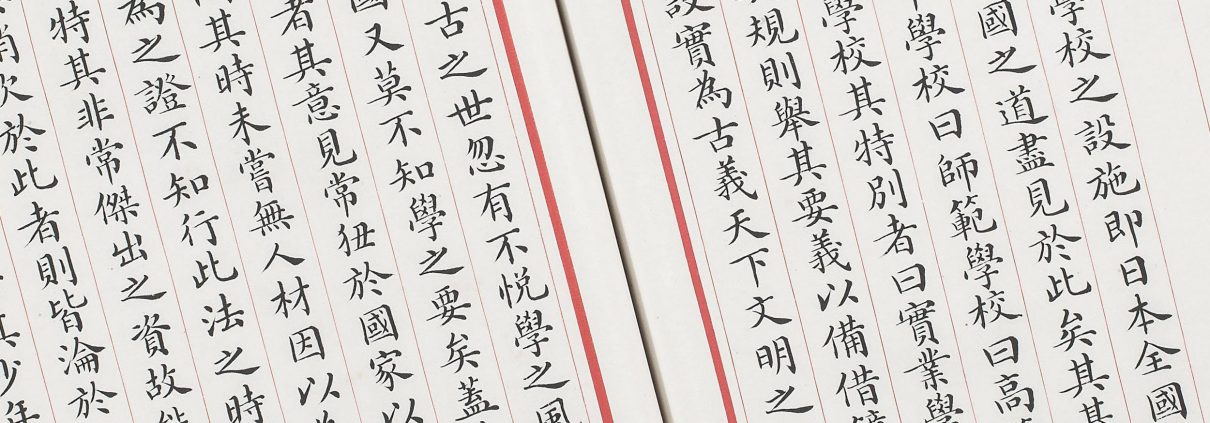 學校之設施即日本全國
國之道盡見於此矣其
學校曰師範學校曰高
學校其特別者曰實業學
規則舉其要義以備借
設實為古義天下文明之
古之世忽有不悅學之風
國又莫不知學之要矣蓋
者其意見常狃於國家以
其時未嘗無人材因以
為之證不知行此法之時
特其非常傑出之資故
於此者則皆淪於
少年